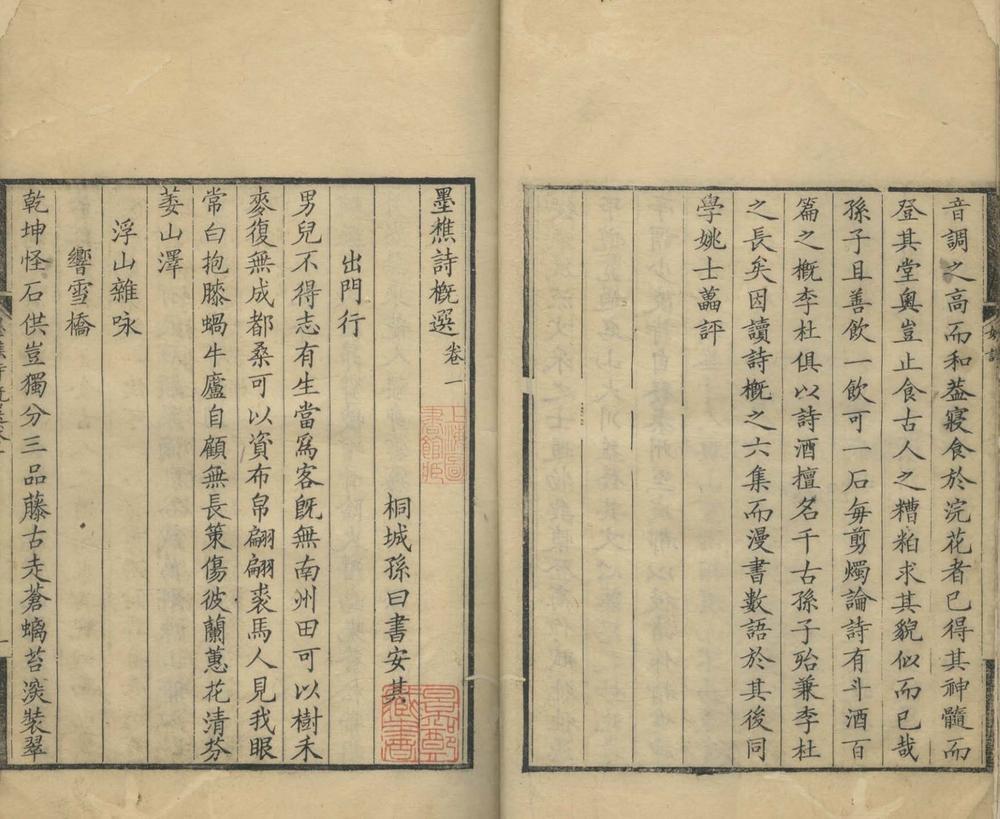 音調之高而和葢寢食於浣花者已得其神髓而
登其堂奥豈止食古人之糟粕求其貌似而已哉
孫子且善飲一飲可一石每剪燭論詩有斗酒百
篇之概李杜俱以詩酒擅名千古孫子殆兼李杜
之長矣因讀詩概之六集而漫書數語於其後同
學姚士藟評
墨樵詩概選卷一
桐城孫曰書安其
出門行
男兒不得志有生當爲客旣無南州田可以樹禾
麥復無成都桑可以資布帛翩翩裘馬人見我眼
常白抱膝蝸牛廬自顧無長策傷彼蘭蕙花清芬
萎山澤
浮山雜咏
響雪橋
乾坤怪石供豈獨分三品藤古走蒼螭苔淡裝翠